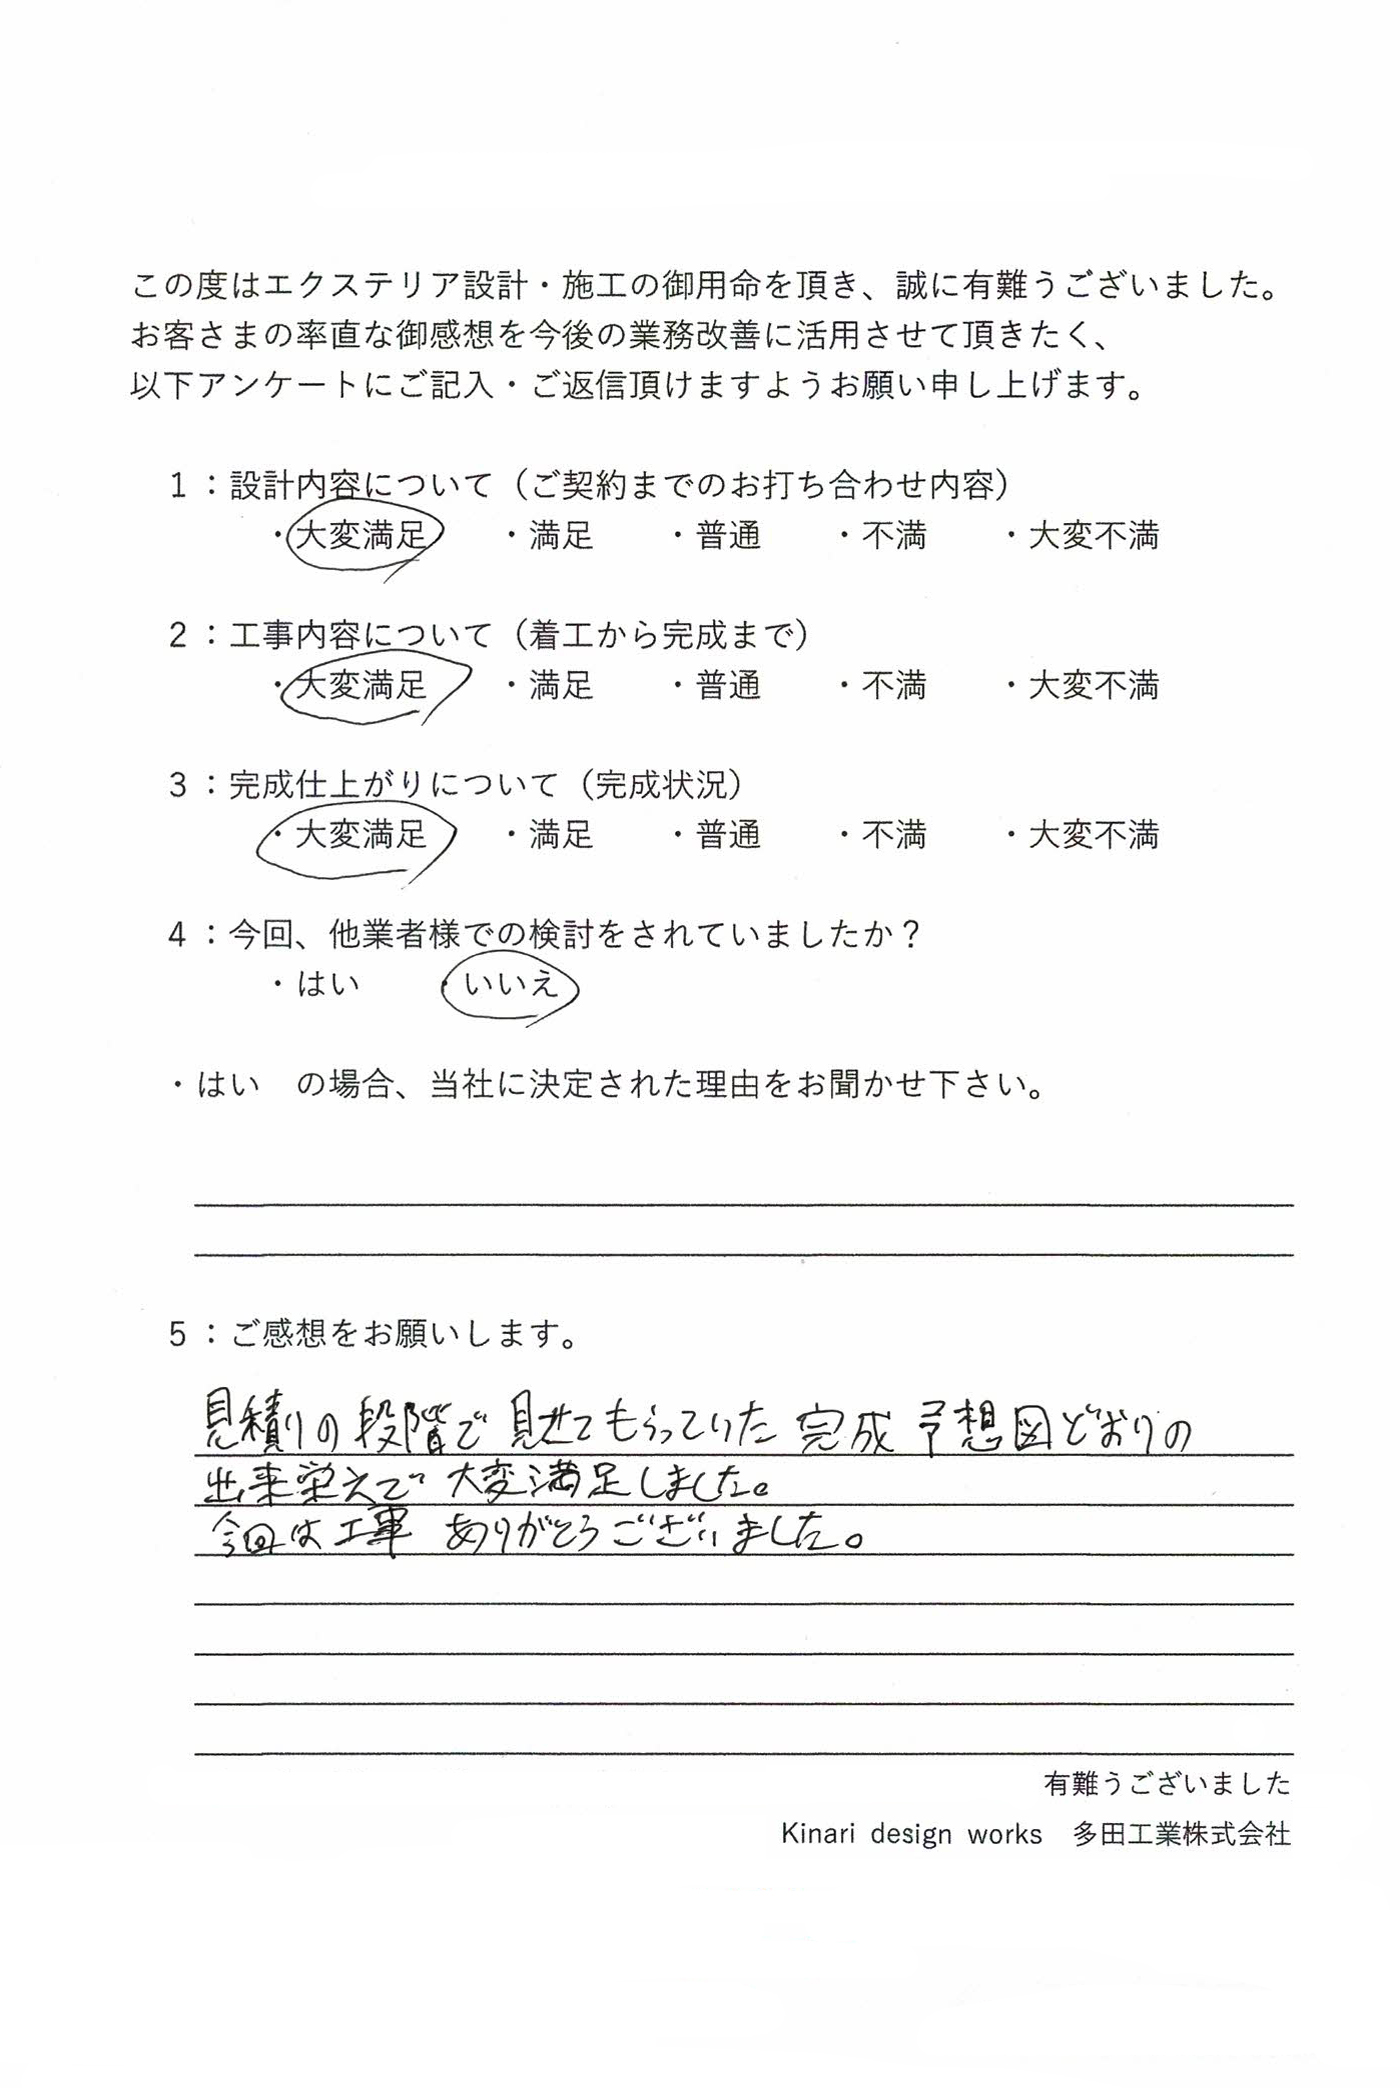 この度はエクステリア設計・施工の御用命を頂き、誠に有難うございました。
お客さまの率直な御感想を今後の業務改善に活用させて頂きたく、
以下アンケートにご記入・ご返信頂けますようお願い申し上げます。
1：設計内容について（ご契約までのお打ち合わせ内容）
・大変満足　・満足　・普通　・不満　・大変不満
2：工事内容について（着工から完成まで）
・大変満足　・満足　・普通　・不満　・大変不満
3：完成仕上がりについて（完成状況）
・大変満足　・満足　・普通　・不満　・大変不満
4：今回、他業者様での検討をされていましたか？
・はい　・いいえ
・はい　の場合、当社に決定された理由をお聞かせ下さい。
5：ご感想をお願いします。
見積りの段階で見せてもらっていた完成予想図どおりの
出来栄えで大変満足しました。
今回は工事ありがとうございました。
有難うございました
Kinari design works　多田工業株式会社